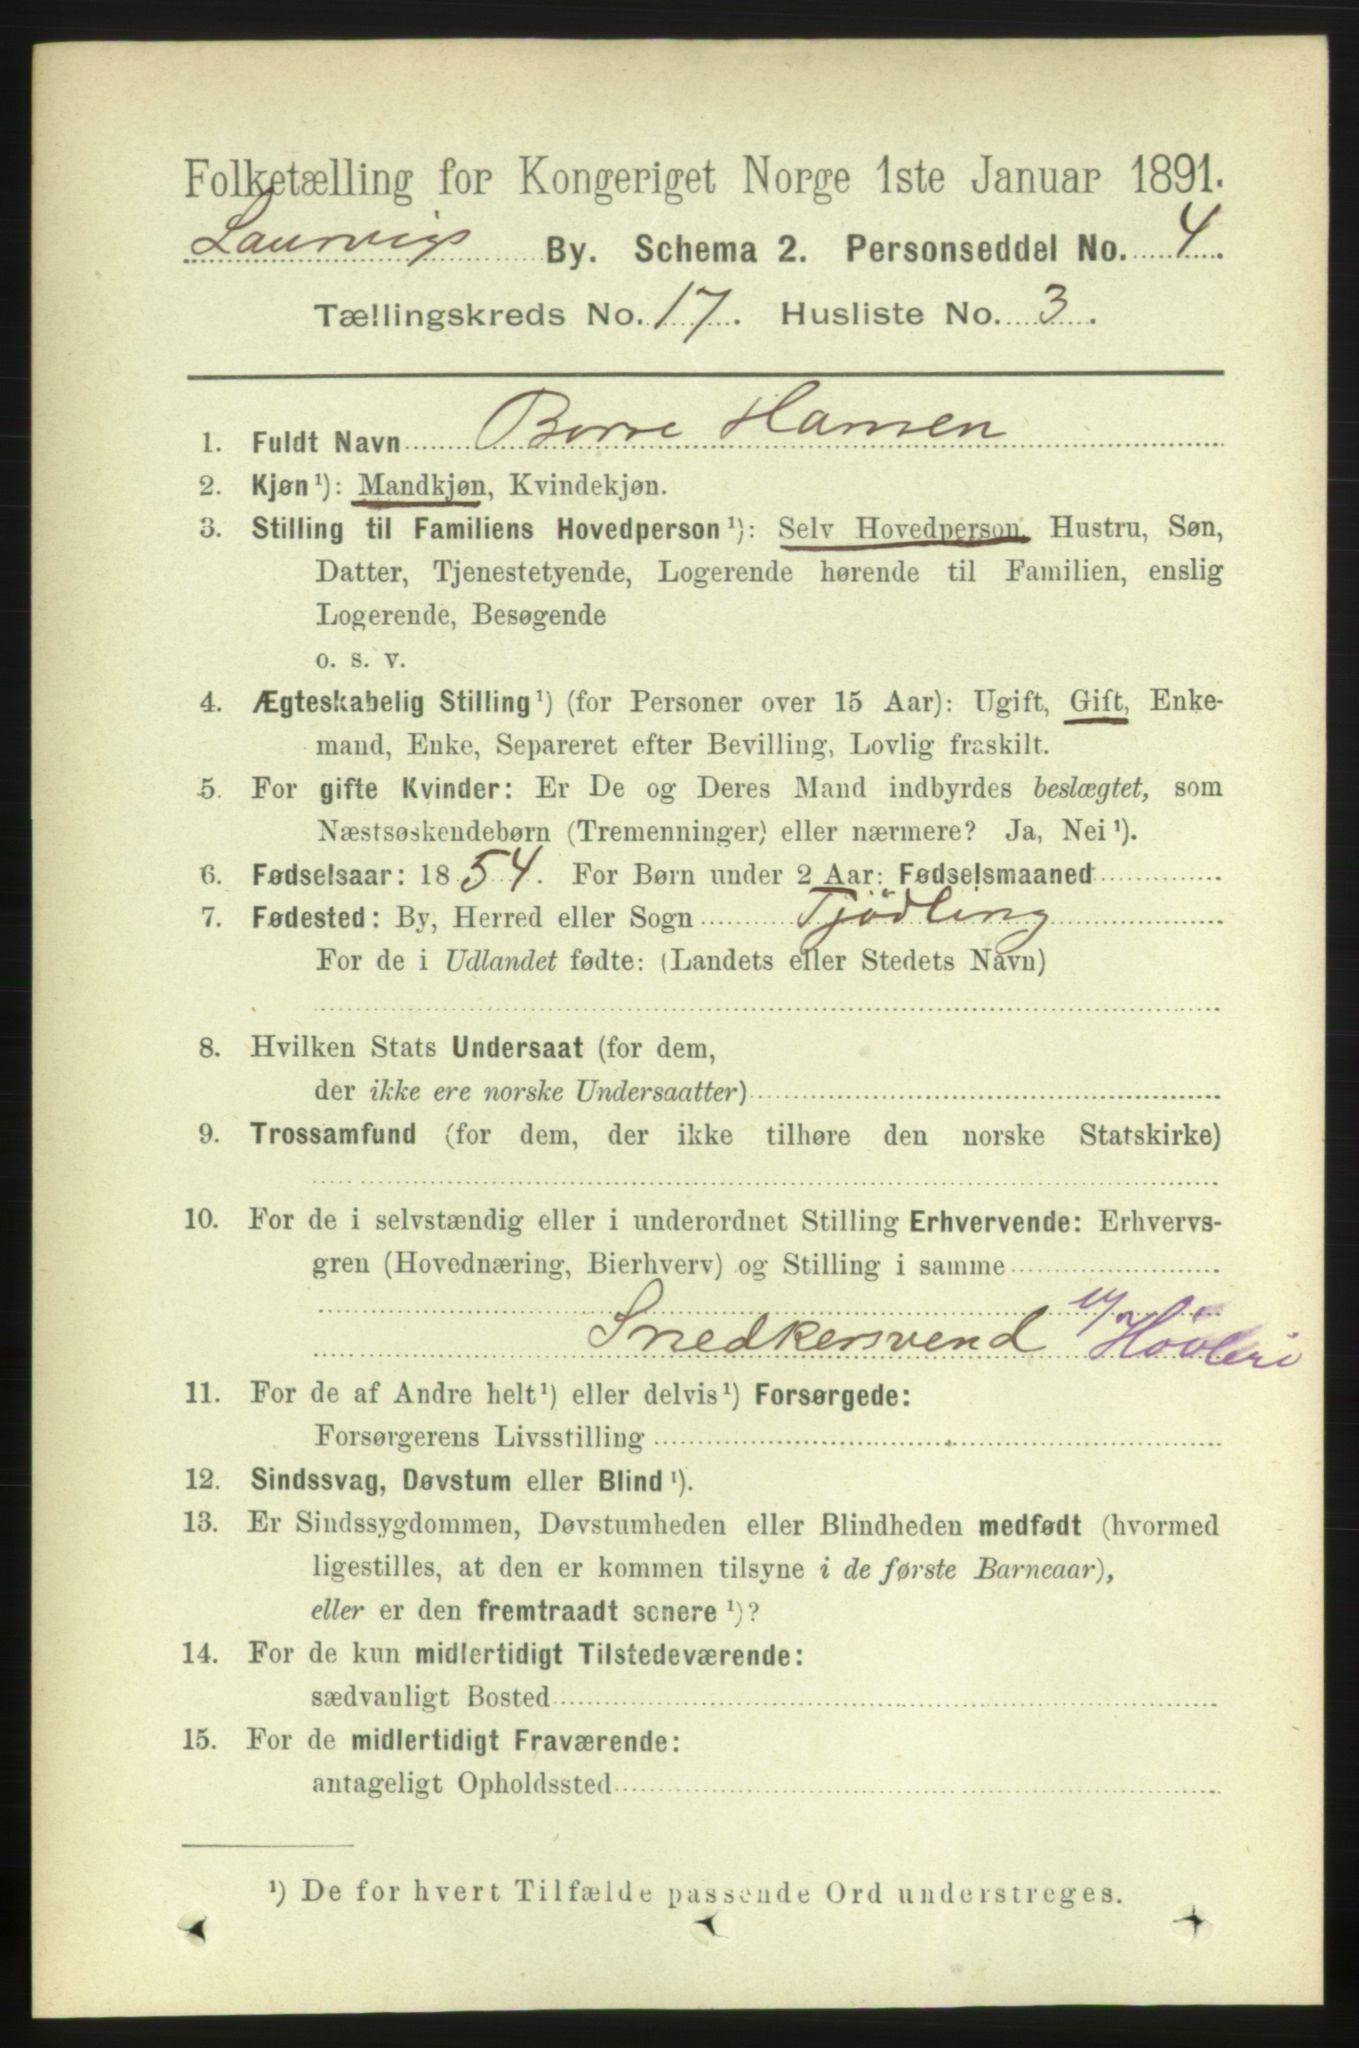 Folketælling for Kongeriget Norge 1ste Januar 1891.
Laurvigs By. Schema 2. Personseddel No. 4.
Tællingskreds No. 17. Husliste No. 3.
1. Fuldt Navn Borre Hansen
2. Kjøn¹): Mandkjøn, Kvindekjøn.
3. Stilling til Familiens Hovedperson¹): Selv Hovedperson, Hustru, Søn,
Datter, Tjenestetyende, Logerende hørende til Familien, enslig
Logerende, Besøgende
o. s. v.
4. Ægteskabelig Stilling¹) (for Personer over 15 Aar): Ugift, Gift, Enke-
mand, Enke, Separeret efter Bevilling, Lovlig fraskilt.
5. For gifte Kvinder: Er De og Deres Mand indbyrdes beslægtet, som
Næstsøskendebørn (Tremenninger) eller nærmere? Ja, Nei¹).
6. Fødselsaar: 1854. For Børn under 2 Aar: Fødselsmaaned
7. Fødested: By, Herred eller Sogn Tjödling
For de i Udlandet fødte: (Landets eller Stedets Navn)
8. Hvilken Stats Undersaat (for dem,
der ikke ere norske Undersaatter)
9. Trossamfund (for dem, der ikke tilhøre den norske Statskirke)
10. For de i selvstændig eller i underordnet Stilling Erhvervende: Erhvervs-
gren (Hovednæring, Bierhverv) og Stilling i samme
Snedkersvend Høvleri
11. For de af Andre helt¹) eller delvis¹) Forsørgede:
Forsørgerens Livsstilling
12. Sindssvag, Døvstum eller Blind¹).
13. Er Sindssygdommen, Døvstumheden eller Blindheden medfødt (hvormed
ligestilles, at den er kommen tilsyne i de første Barneaar),
eller er den fremtraadt senere¹)?
14. For de kun midlertidigt Tilstedeværende:
sædvanligt Bosted
15. For de midlertidigt Fraværende:
antageligt Opholdssted
¹) De for hvert Tilfælde passende Ord understreges.